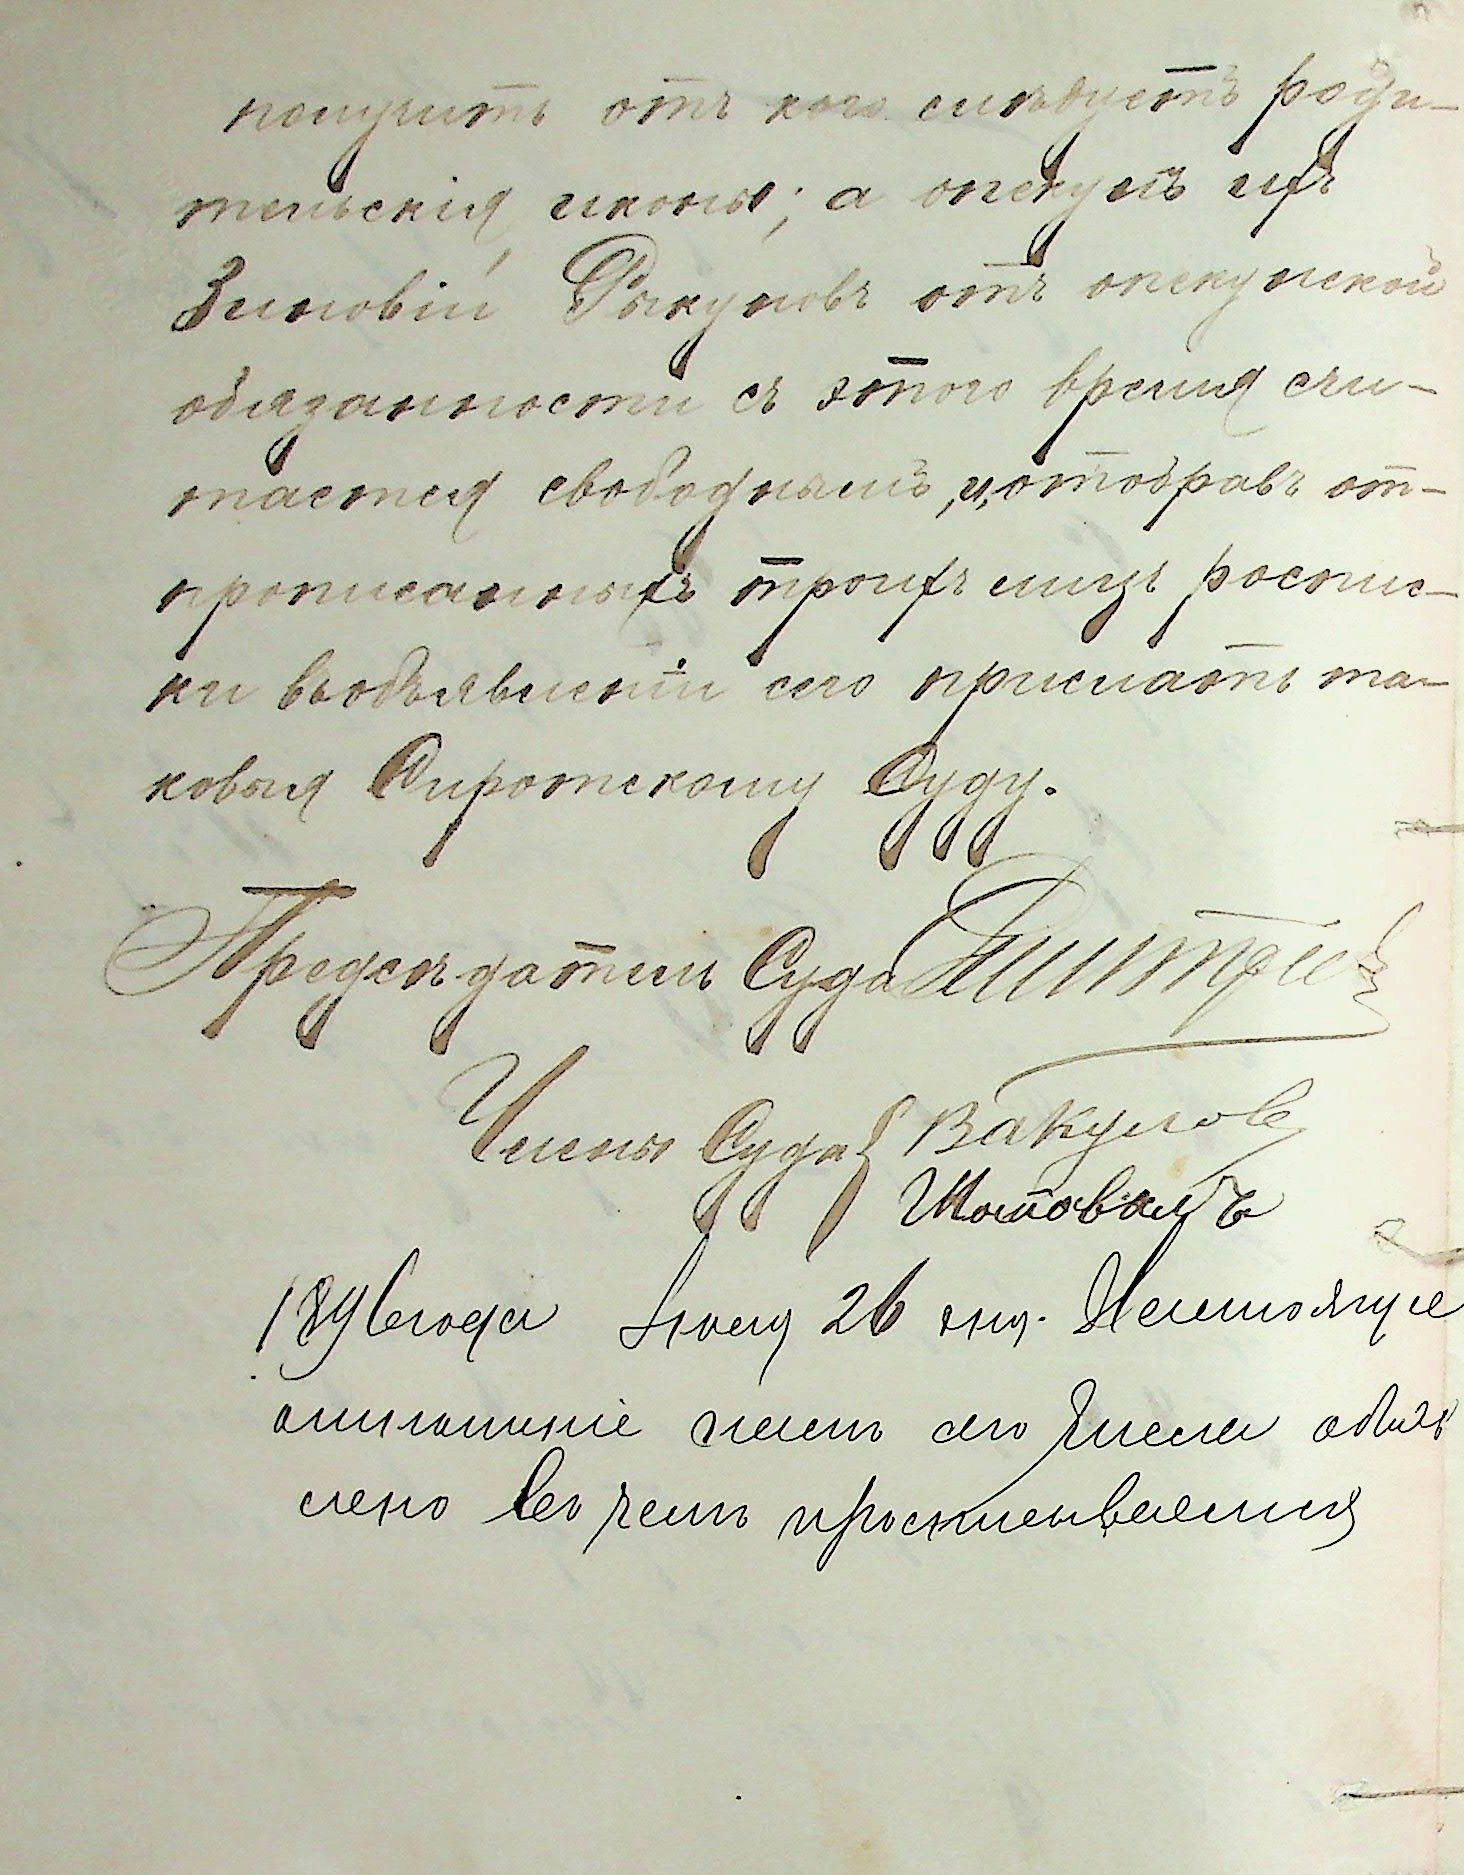 получить отъ кого слѣдуетъ роди-
тельскія иконы; а опекунъ ихъ
Зиновій Рыкуновъ отъ опекунской
обязанности съ этого время счи-
тается свободнымъ, и, отобравъ от-
прописанныхъ троихъ лицъ роспис-
ки въобъявленіи сего прислать та-
ковыя Сиротскому Суду.
Предсѣдатель Суда
Члены Суда { Вакулов
Шаповалъ
1896 года Іюля 26 дня.
сего обьяв
лено въ чемъ